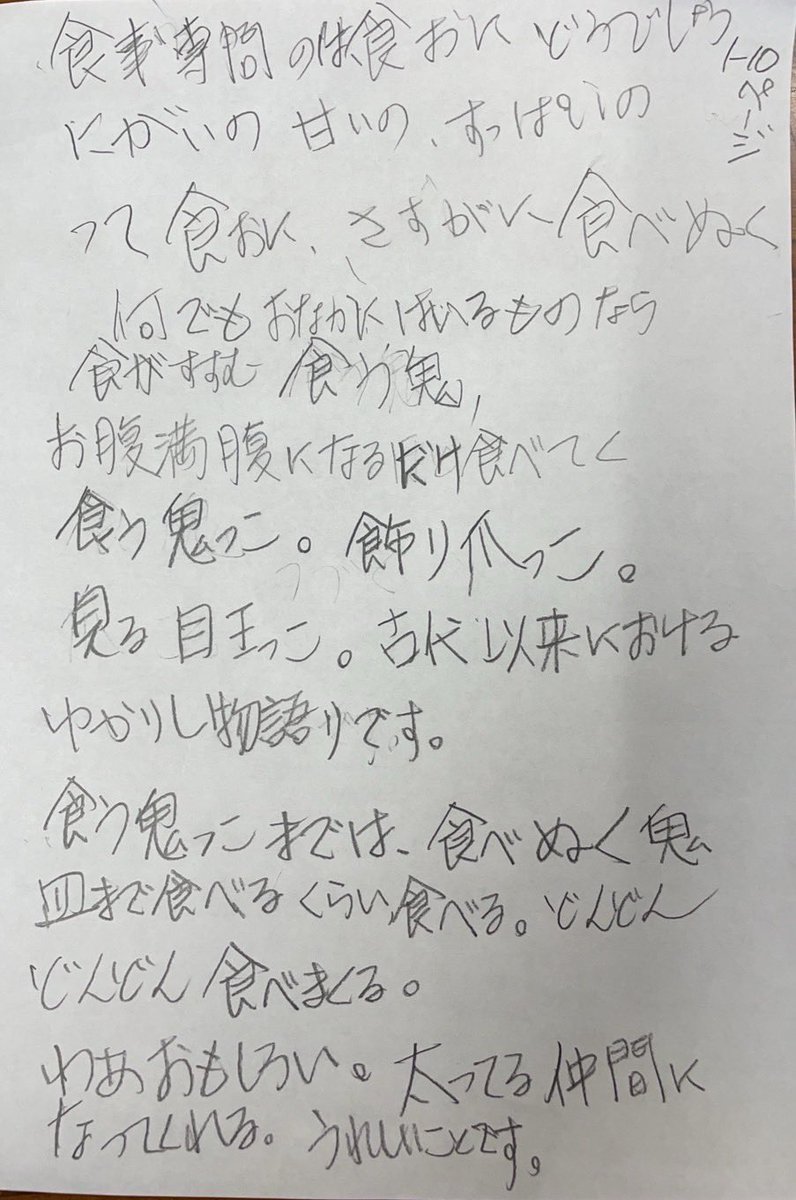 食事専門のは食おに どうでしょう
1-10ページ
にがいの 甘いの、すっぱいの
って食おに、さすがに食べぬく
何でもおなかにはいるものなら
食がすすむ 食う鬼、
お腹満腹になるだけ食べてく
食う鬼っこ。飾り爪っこ。
見る目玉っこ。古代以来における
ゆかりし物語りです。
食う鬼っこまでは、食べぬく鬼
皿まで食べるくらい食べる。どんどん
どんどん食べまくる。
わあおもしろい。太ってる仲間に
なってくれる。うれしいことです。